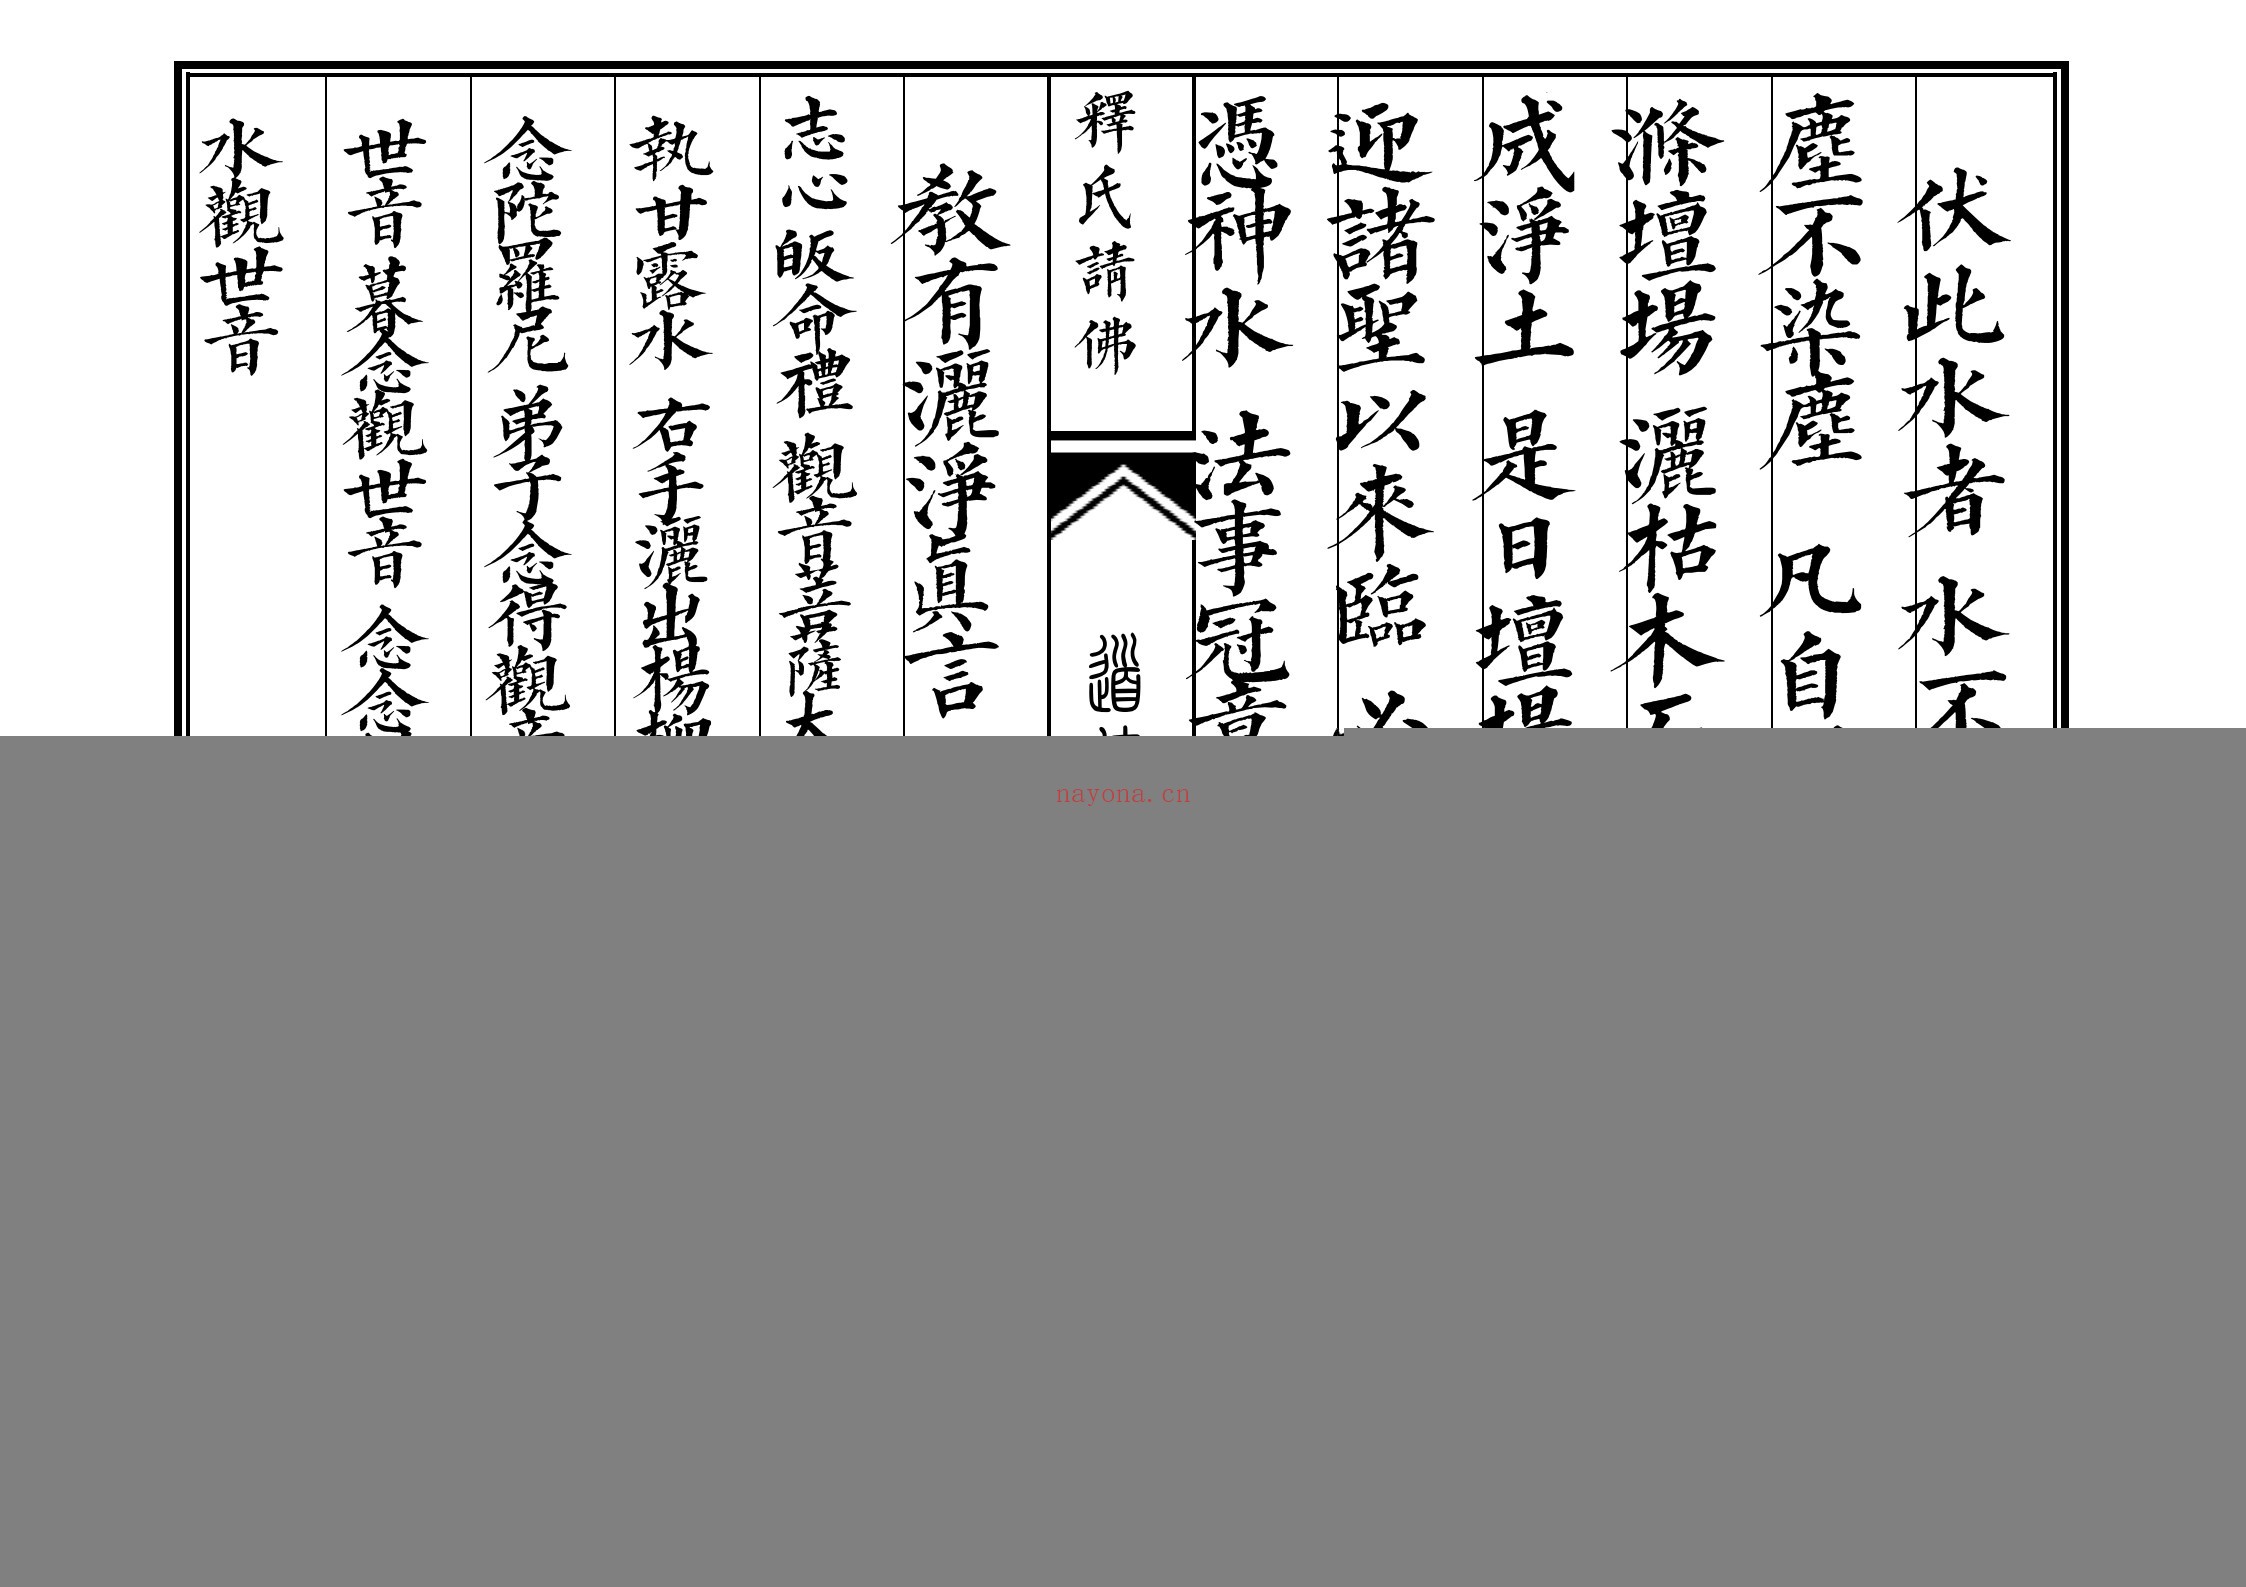 伏此水者 水不
塵不染塵 凡自
滌壇場 灑枯木
成淨土 是日壇場
迎諸聖以來臨 必
憑神水 法事冠章
釋氏請佛 道
教有灑淨眞言
志心皈命禮 觀音菩薩大
執甘露水 右手灑出楊柳
念陀羅尼 弟子念得觀音
世音 暮念觀世音 念念
水觀世音
nayona.cn